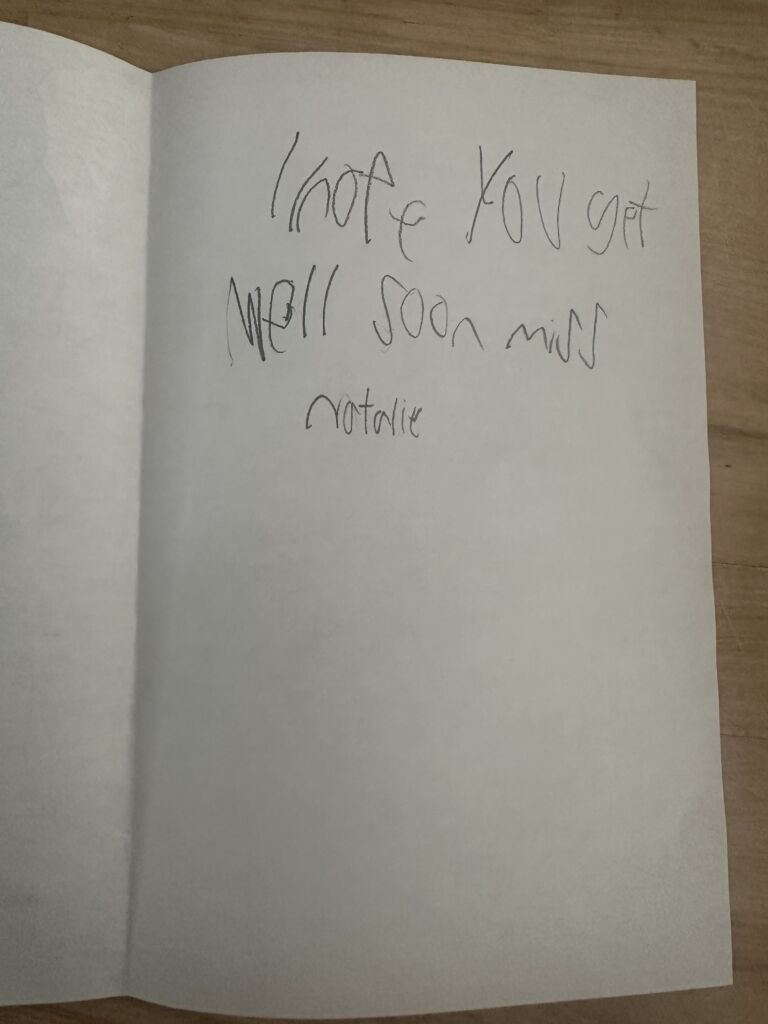 I hope you get
well soon miss
natalie